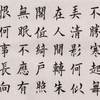 不勝寒起舞
弄清影何似
在人間轉朱
閣低綺戶照
無眠不應有
恨何事長向